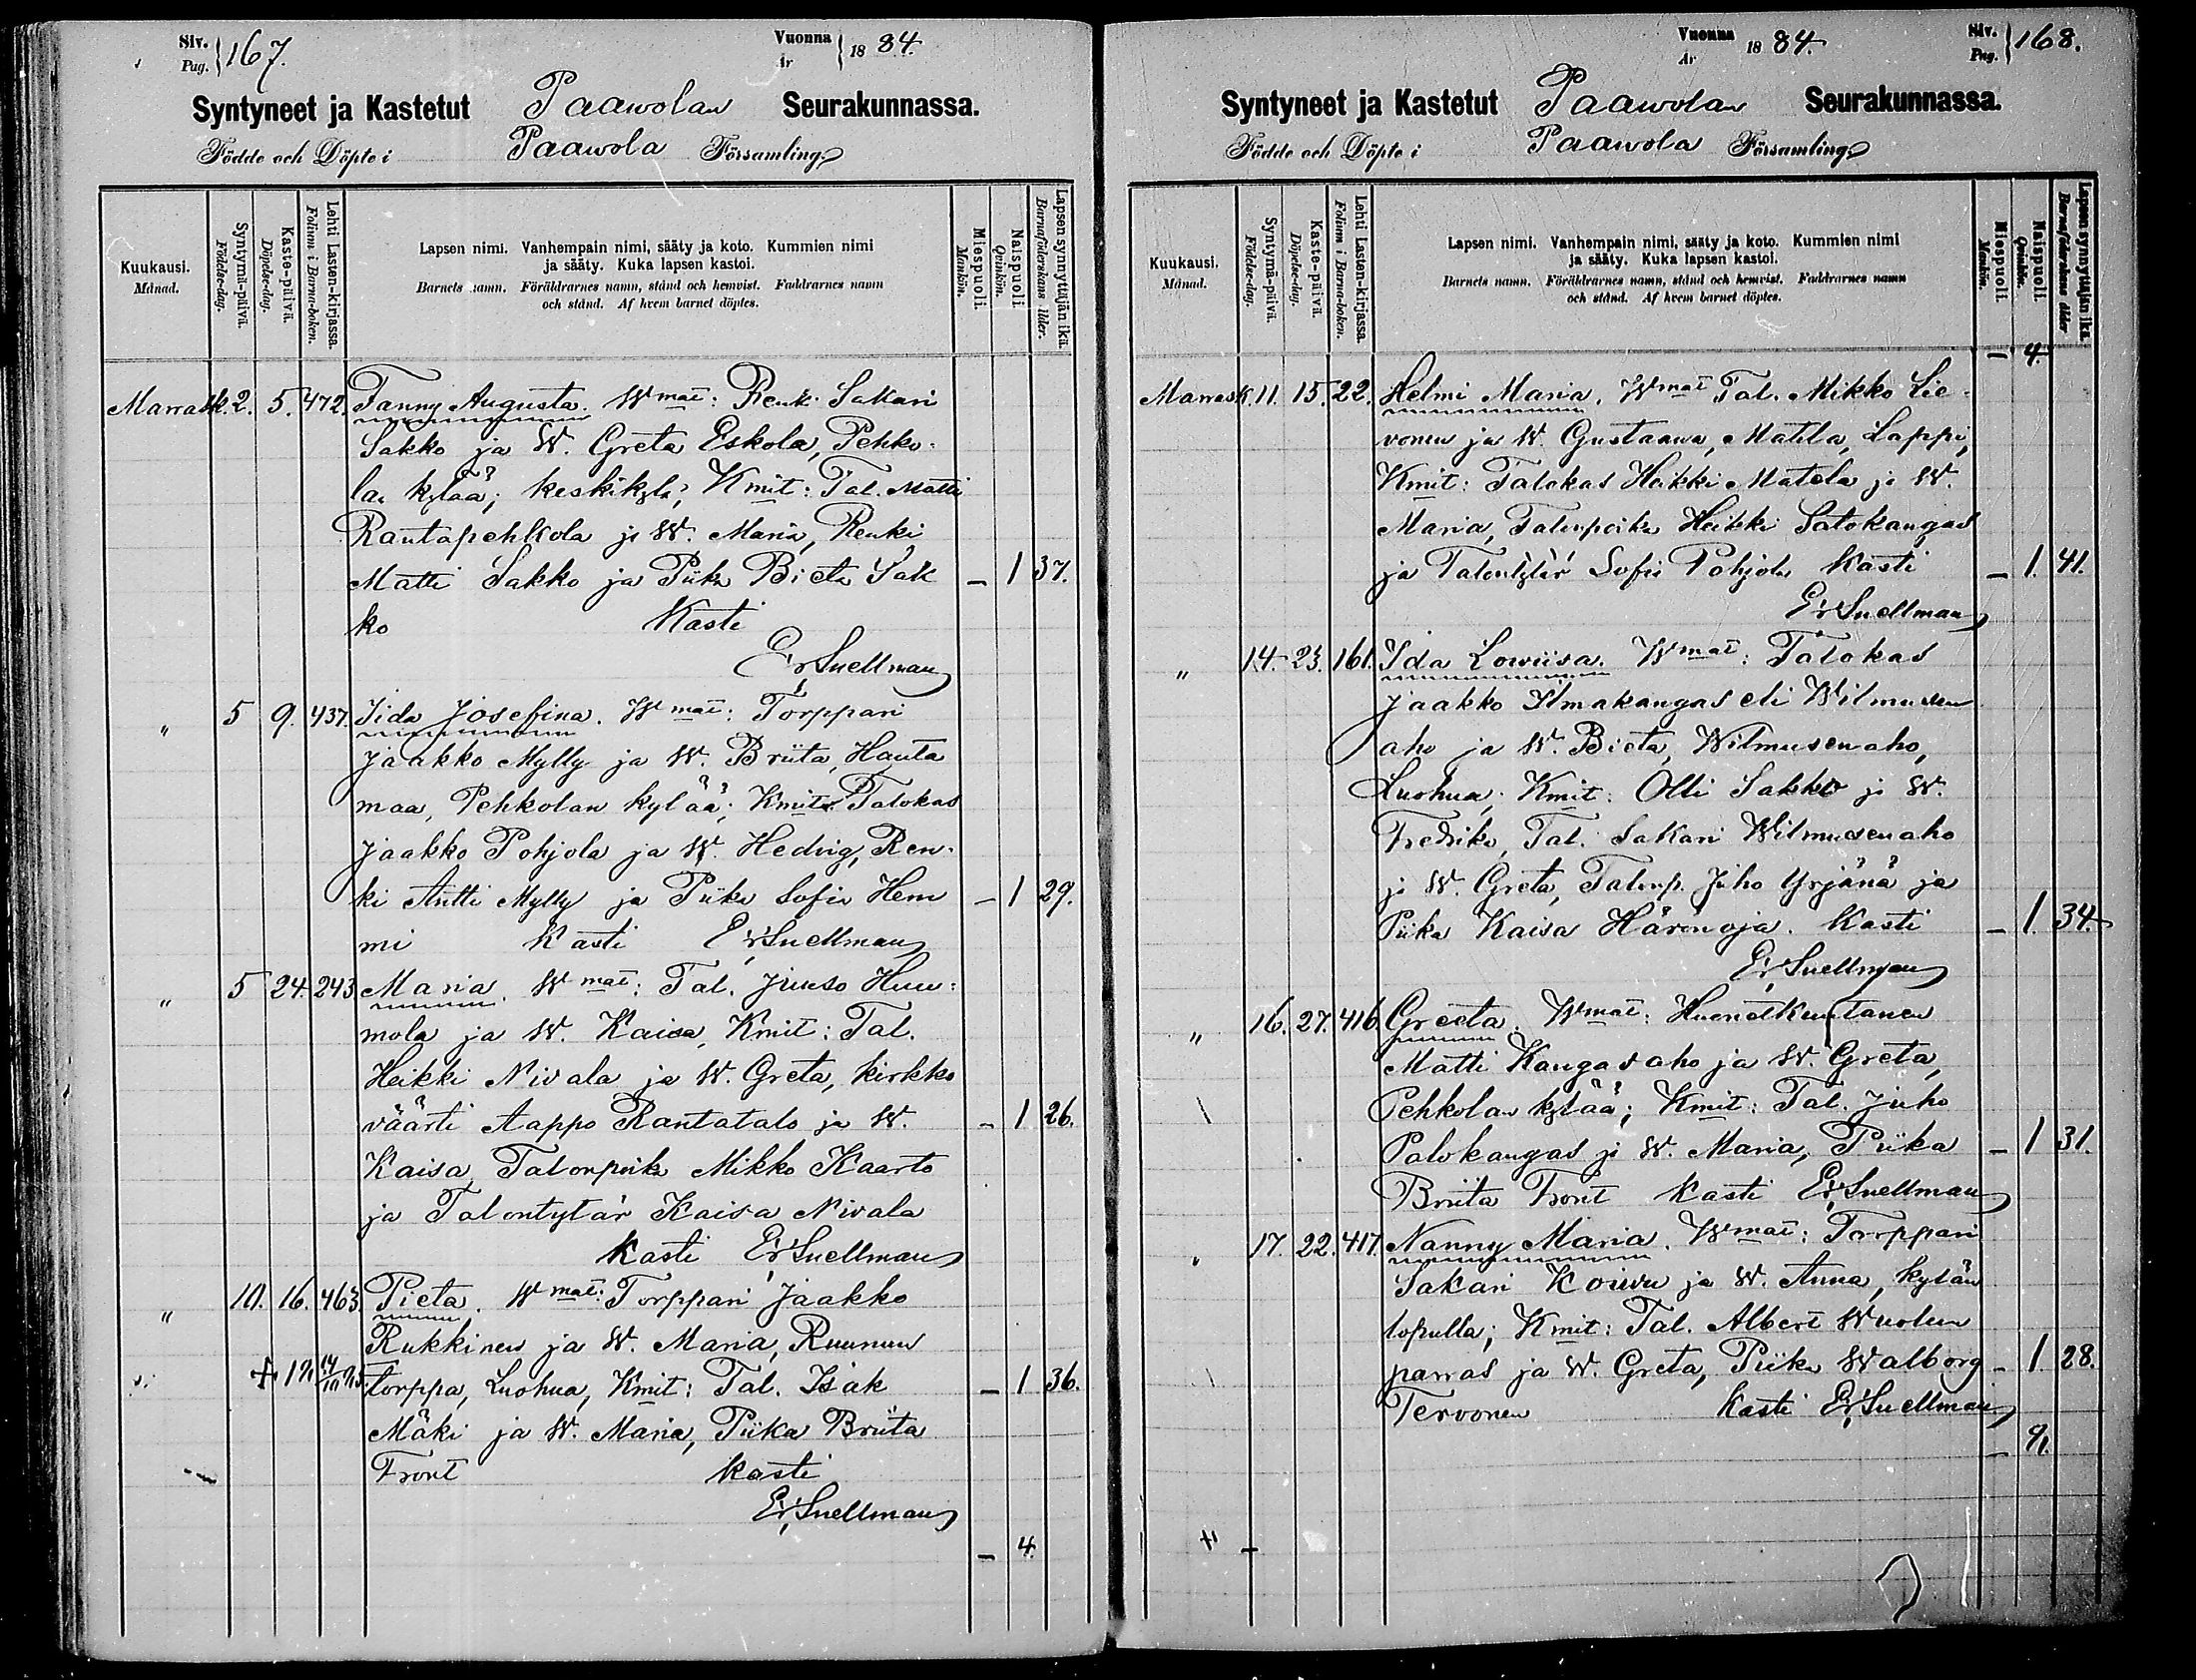 Siv. Pag. 167.
Vuonna År 1884.
Syntyneet ja Kastetut Paawolan Seurakunnassa.
Födde och Döpte i Paawola Församling.
Kuukausi. Månad.
Syntymä-päivä. Födelse-dag.
Kaste-päivä. Döpelse-dag.
Lehti Lasten-kirjassa. Folium i Barna-boken.
Lapsen nimi. Vanhempain nimi, sääty ja koto. Kummien nimi
ja sääty. Kuka lapsen kastoi.
Barnets namn. Föräldrarnes namn, stånd och hemvist. Faddrarnes namn
och stånd. Af hvem barnet döptes.
Miespuoli. Mankön.
Naispuoli. Qvinkön.
Lapsen synnyttäjän ikä. Barnaföderskans ålder.
Marrask. 2. 5. 472. Fanny Augusta. Wmat: Renki Sakari
Sakko ja W. Greta Eskola, Pehko-
lan kylää; keskikylä; Kmit: Tal. Matti
Rantapehkola ja W. Maria, Renki
Matti Sakko ja Piika Bieta Sak – 1 37.
ko Kasti
Er Snellman
" 5 9. 437. Iida Josefina. Wmat: Torppari
Jaakko Mylly ja W. Briita, Hauta
maa, Pehkolan kylää; Kmit: Talokas
Jaakko Pohjola ja W. Hedvig, Ren-
ki Antti Mylly ja Piika Sofia Hem – 1 29.
mi Kasti Er Snellman
" 5 24. 243 Maria. Wmat: Tal. Juuso Huu-
mola ja W. Kaisa, Kmit: Tal.
Heikki Nivala ja W. Greta, kirkko
väärti Aappo Rantatalo ja W. – 1 26.
Kaisa, Talonpoika Mikko Kaarto
ja Talontytär Kaisa Nivala
Kasti Er Snellman
" 10. 16. 463. Pieta. Wmat: Torppari Jaakko
Rukkinen ja W. Maria, Ruunun
torppa, Luohua, Kmit: Tal. Isak – 1 36.
Mäki ja W. Maria, Piika Briita
Front Kasti
Er Snellman
– 4.
Vuonna År 1884.
Siv. Pag. 168.
Syntyneet ja Kastetut Paawolan Seurakunnassa.
Födde och Döpte i Paawola Församling.
Kuukausi. Månad.
Syntymä-päivä. Födelse-dag.
Kaste-päivä. Döpelse-dag.
Lehti Lasten-kirjassa. Folium i Barna-boken.
Lapsen nimi. Vanhempain nimi, sääty ja koto. Kummien nimi
ja sääty. Kuka lapsen kastoi.
Barnets namn. Föräldrarnes namn, stånd och hemvist. Faddrarnes namn
och stånd. Af hvem barnet döptes.
Miespuoli. Mankön.
Naispuoli. Qvinkön.
Lapsen synnyttäjän ikä. Barnaföderskans ålder.
– 4.
Marrask. 11. 15. 22. Helmi Maria. Wmat Tal. Mikko Lie-
vonen ja W. Gustaawa, Matila, Lappi,
Kmit: Talokas Heikki Matola ja W.
Maria, Talonpoika Heikki Satokangas
ja Talontytär Sofia Pohjola Kasti – 1. 41.
Er Snellman
" 14. 23. 161. Ida Lowiisa. Wmat: Talokas
Jaakko Ilmakangas eli Wilmusen
aho ja W. Bieta, Wilmusenaho,
Luohua; Kmit: Olli Sakko ja W.
Fredrika, Tal. Sakari Wilmusenaho
ja W. Greta, Talonp. Juho Yrjänä ja
Piika Kaisa Härönoja. Kasti – 1. 34.
Er Snellman
" 16. 27. 416. Greeta. Wmat:
Matti Kangasaho ja W. Greta,
Pehkolan kylää; Kmit: Tal. Juho
Palokangas ja W. Maria, Piika – 1 31.
Briita Front Kasti Er Snellman
" 17. 22. 417. Nanny Maria. Wmat: Torppari
Sakari Koiwu ja W. Anna, kylän
lopulla; Kmit: Tal. Albert Wuolun
parras ja W. Greta, Piika Walborg – 1 28.
Tervonen Kasti Er Snellman